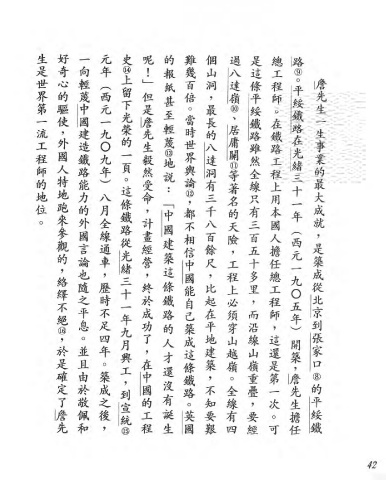 詹先生一生事業的最大成就，是築成從北京到張家口⑧的平綏鐵
路⑨。平綏鐵路在光緒三十一年（西元一九○五年）開築，詹先生擔任
總工程師。在鐵路工程上用本國人擔任總工程師，這還是第一次。可
是這條平綏鐵路雖然全線只有三百五十多里，而沿線山嶺重疊，要經
過八達嶺⑩、居庸關⑪等著名的天險，工程上必須穿山越嶺。全線有四
個山洞，最長的八達洞有三千八百餘尺，比起在平地建築，不知要艱
難幾百倍。當時世界輿論⑫，都不相信中國能自己築成這條鐵路。英國
的報紙甚至輕蔑⑬地說：「中國建築這條鐵路的人才還沒有誕生
呢！」但是詹先生毅然受命，計畫經營，終於成功了，在中國的工程
史⑭上留下光榮的一頁。這條鐵路從光緒三十一年九月興工，到宣統⑮
元年（西元一九○九年）八月全線通車，歷時不足四年。築成之後，
一向輕蔑中國建造鐵路能力的外國言論也隨之平息。並且由於敬佩和
好奇心的驅使，外國人特地跑來參觀的，絡繹不絕⑯，於是確定了詹先
生是世界第一流工程師的地位。
42